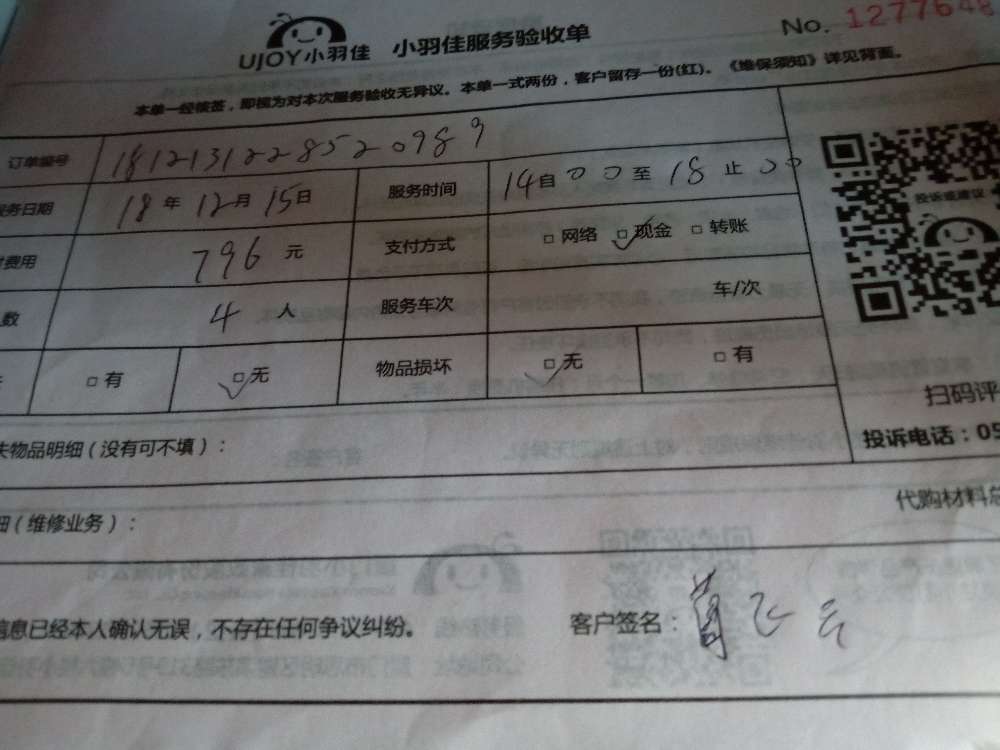 UJOY小羽佳 小羽佳服务验收单 No. 1277648
本单一经核签，即视为对本次服务验收无异议。本单一式两份，客户留存一份(红)。《维保须知》详见背面。
订单编号 1812131228520989
服务日期 18年12月15日 服务时间 14自00至18止00
费用 796元 支付方式 □网络 □现金 □转账
人数 4人 服务车次 车/次
□有 □无 物品损坏 □无 □有
投诉或建议
扫码评
失物品明细（没有可不填）： 投诉电话：05
细（维修业务）： 代购材料总
信息已经本人确认无误，不存在任何争议纠纷。 客户签名： 飞云